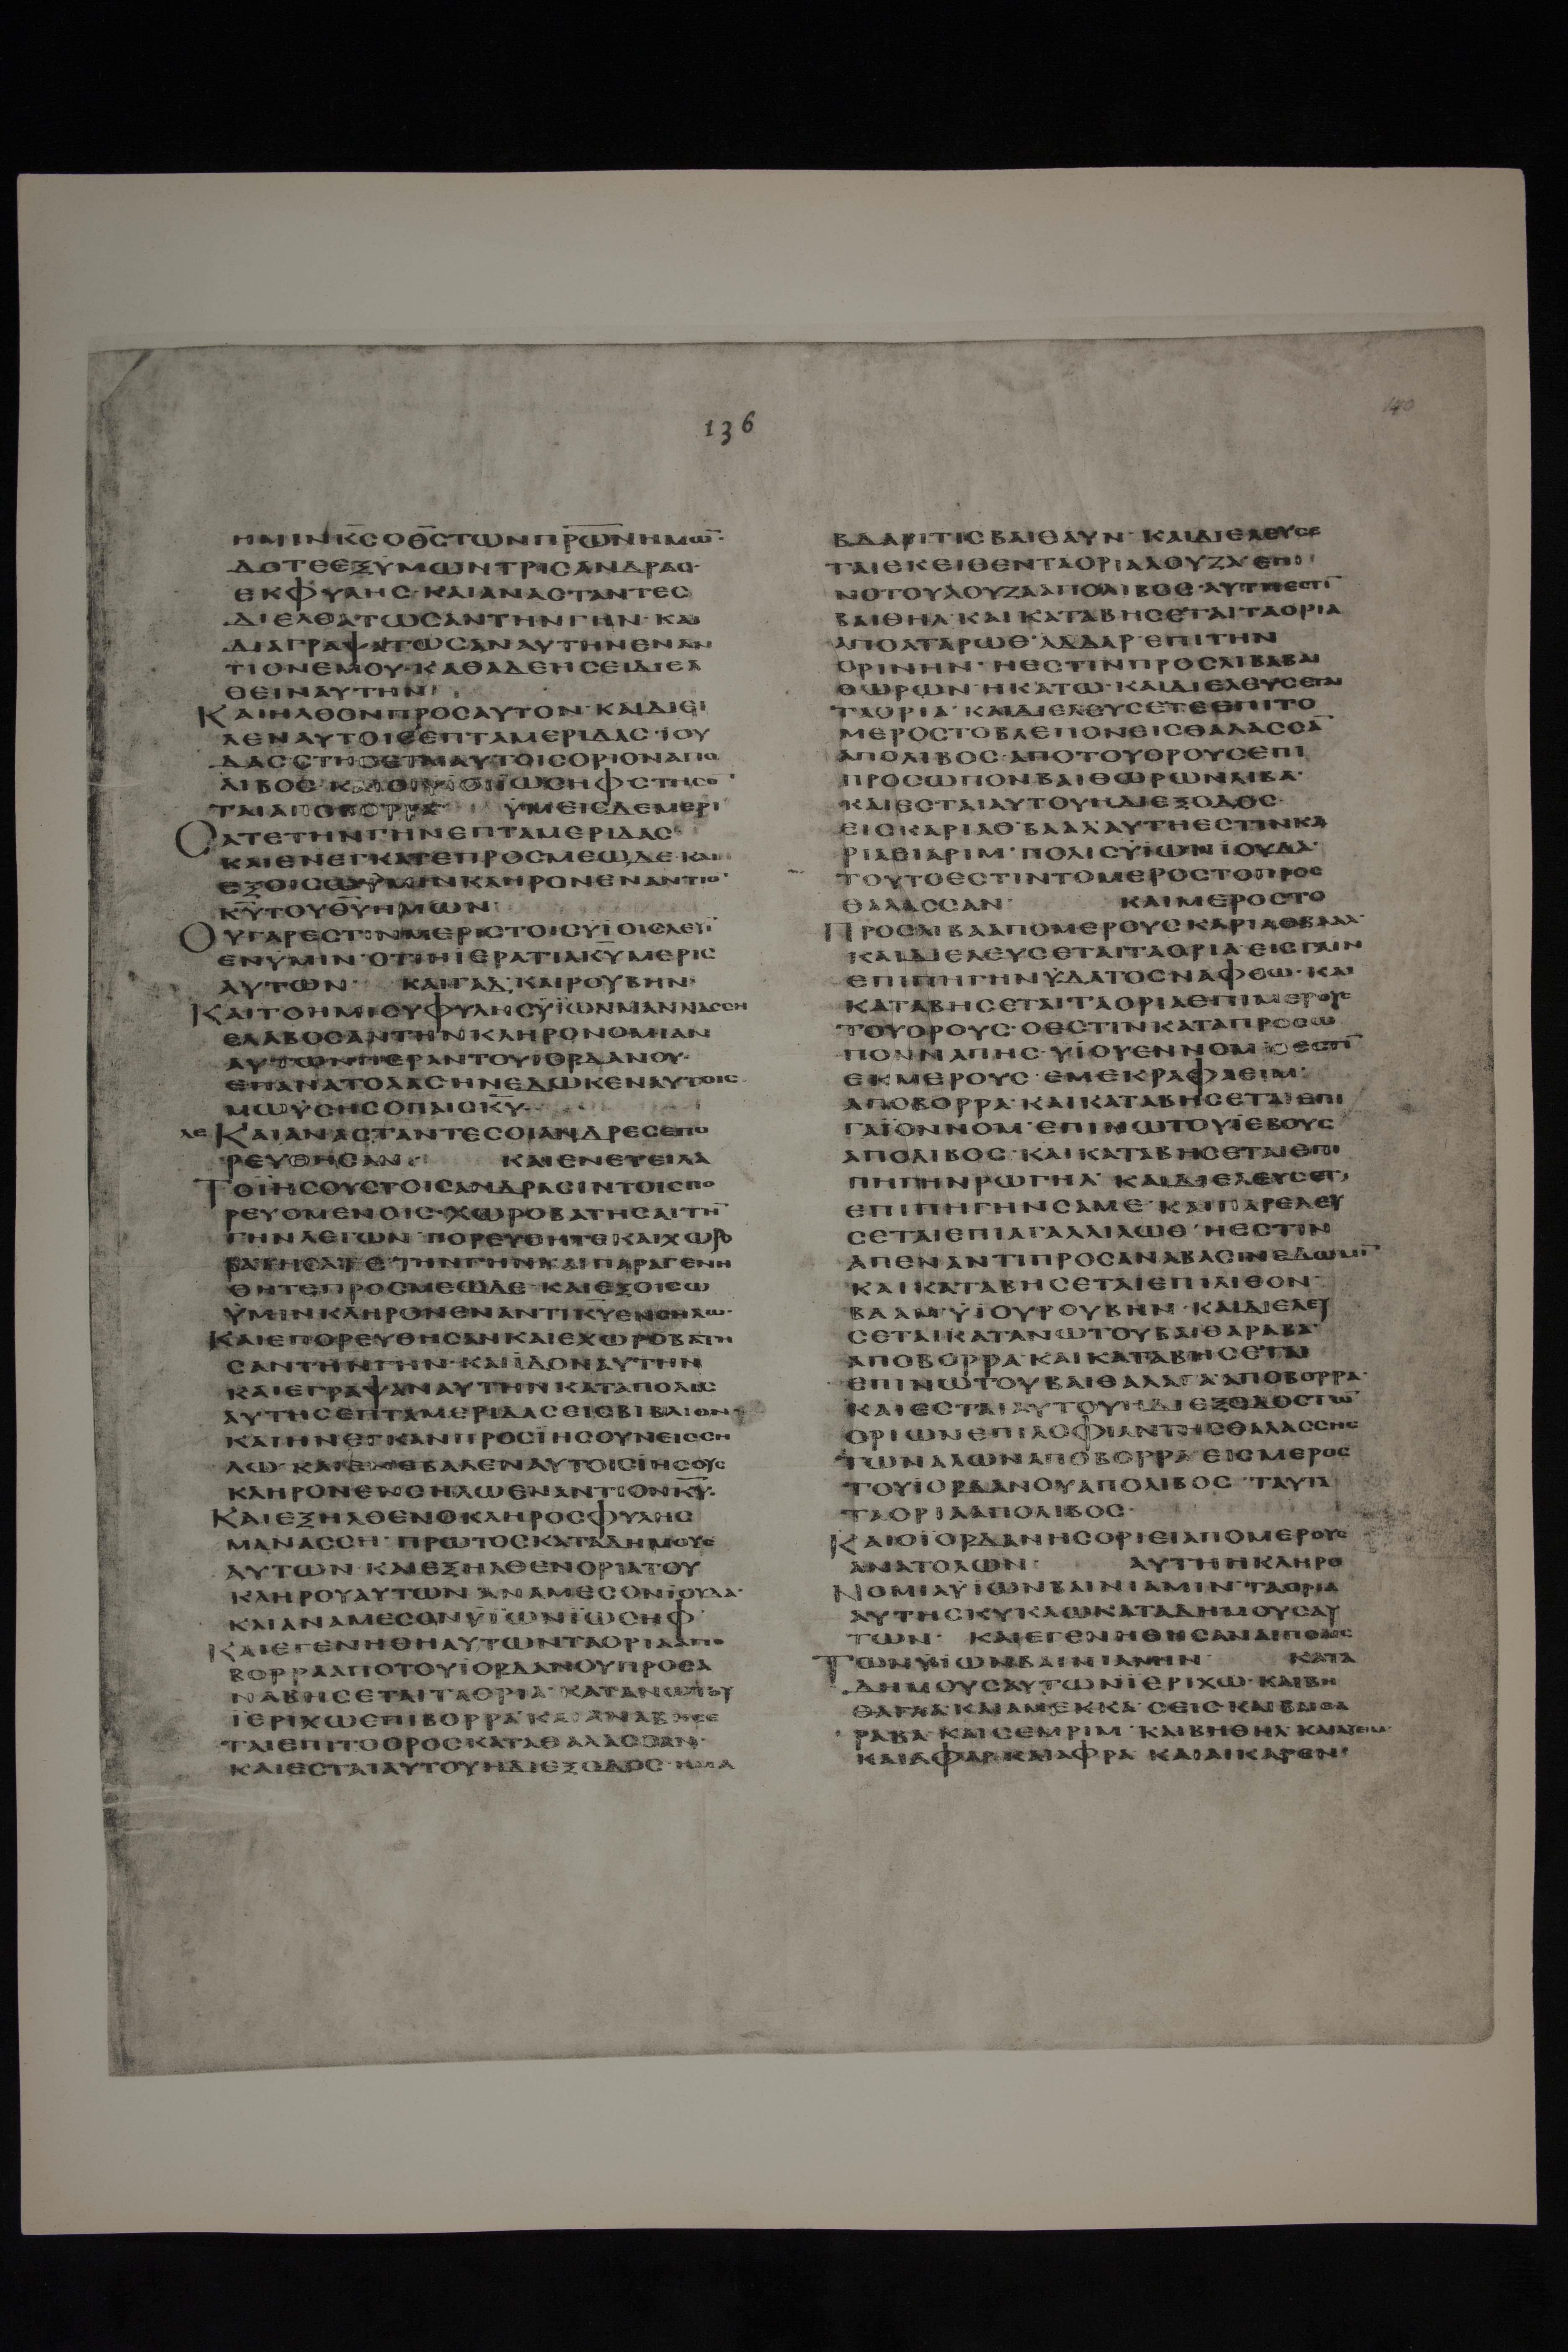 136
140
ΗΜΙΝ Κ̅Σ̅ Ο Θ̅Σ̅ ΤΩΝ Π̅Ρ̅Ω̅Ν̅ ΗΜΩ̅·
ΔΟΤΕ ΕΞ ΥΜΩΝ ΤΡΙΣ ΑΝΔΡΑΣ·
ΕΚ ΦΥΛΗΣ· ΚΑΙ ΑΝΑΣΤΑΝΤΕΣ
ΔΙΕΛΘΑΤΩΣΑΝ ΤΗΝ ΓΗΝ· ΚΑΙ
ΔΙΑΓΡΑΨΑΤΩΣΑΝ ΑΥΤΗΝ ΕΝΑΝ
ΤΙΟΝ ΕΜΟΥ· ΚΑΘΑ ΔΕΗΣΕΙ ΔΙΕΛ
ΘΕΙΝ ΑΥΤΗΝ
ΚΑΙ ΗΛΘΟΝ ΠΡΟΣ ΑΥΤΟΝ· ΚΑΙ ΔΙΕΙ
ΛΕΝ ΑΥΤΟΙΣ ΕΠΤΑ ΜΕΡΙΔΑΣ· ΪΟΥ
ΔΑΣ ΣΤΗΣΕΤΑΙ ΑΥΤΟΙΣ ΟΡΙΟΝ ΑΠΟ
ΛΙΒΟΣ· ΚΑΙ ΟΙ ΥΙΟΙ ΪΩΣΗΦ ΣΤΗΣΟ̅
ΤΑΙ ΑΠΟ ΒΟΡΡΑ· ΥΜΕΙΣ ΔΕ ΜΕΡΙ
ΣΑΤΕ ΤΗΝ ΓΗΝ ΕΠΤΑ ΜΕΡΙΔΑΣ·
ΚΑΙ ΕΝΕΓΚΑΤΕ ΠΡΟΣ ΜΕ ΩΔΕ· ΚΑΙ
ΕΞΟΙΣΩ ΫΜΙΝ ΚΛΗΡΟΝ ΕΝΑΝΤΙΟ̅
Κ̅Υ̅ ΤΟΥ Θ̅Υ̅ ΗΜΩΝ·
ΟΥ ΓΑΡ ΕΣΤΙΝ ΜΕΡΙΣ ΤΟΙΣ ΥΪΟΙΣ ΛΕΥΙ
ΕΝ ΥΜΙΝ· ΟΤΙ Η ΙΕΡΑΤΙΑ Κ̅Υ̅ ΜΕΡΙΣ
ΑΥΤΩΝ· ΚΑΙ ΓΑΔ· ΚΑΙ ΡΟΥΒΗΝ·
ΚΑΙ ΤΟ ΗΜΙΣΥ ΦΥΛΗΣ ΥΪΩΝ ΜΑΝΝΑΣΣΗ
ΕΛΑΒΟΣΑΝ ΤΗΝ ΚΛΗΡΟΝΟΜΙΑΝ
ΑΥΤΩΝ ΠΕΡΑΝ ΤΟΥ ΙΟΡΔΑΝΟΥ·
ΕΠ ΑΝΑΤΟΛΑΣ ΗΝ ΕΔΩΚΕΝ ΑΥΤΟΙΣ
ΜΩΫΣΗΣ Ο ΠΑΙΣ Κ̅Υ̅·
ΛΕ ΚΑΙ ΑΝΑΣΤΑΝΤΕΣ ΟΙ ΑΝΔΡΕΣ ΕΠΟ
ΡΕΥΘΗΣΑΝ· ΚΑΙ ΕΝΕΤΕΙΛΑ
ΤΟ ΪΗΣΟΥΣ ΤΟΙΣ ΑΝΔΡΑΣΙΝ ΤΟΙΣ ΠΟ
ΡΕΥΟΜΕΝΟΙΣ· ΧΩΡΟΒΑΤΗΣΑΙ ΤΗ̅
ΓΗΝ ΛΕΓΩΝ· ΠΟΡΕΥΘΗΤΕ ΚΑΙ ΧΩΡΟ
ΒΑΤΗΣΑΤΕ ΤΗΝ ΓΗΝ ΚΑΙ ΠΑΡΑΓΕΝΗ
ΘΗΤΕ ΠΡΟΣ ΜΕ ΩΔΕ· ΚΑΙ ΕΞΟΙΣΩ
ΫΜΙΝ ΚΛΗΡΟΝ ΕΝΑΝΤΙ Κ̅Υ̅ ΕΝ ΣΗΛΩ·
ΚΑΙ ΕΠΟΡΕΥΘΗΣΑΝ ΚΑΙ ΕΧΩΡΟΒΑΤΗ
ΣΑΝ ΤΗΝ ΓΗΝ· ΚΑΙ ΪΔΟΝ ΑΥΤΗΝ
ΚΑΙ ΕΓΡΑΨΑΝ ΑΥΤΗΝ ΚΑΤΑ ΠΟΛΙΣ
ΑΥΤΗΣ ΕΠΤΑ ΜΕΡΙΔΑΣ ΕΙΣ ΒΙΒΛΙΟΝ·
ΚΑΙ ΗΝΕΓΚΑΝ ΠΡΟΣ ΪΗΣΟΥΝ ΕΙΣ ΣΗ
ΛΩ· ΚΑΙ ΕΝΕΒΑΛΕΝ ΑΥΤΟΙΣ ΙΗΣΟΥΣ
ΚΛΗΡΟΝ ΕΝ ΣΗΛΩ ΕΝΑΝΤΙΟΝ Κ̅Υ̅·
ΚΑΙ ΕΞΗΛΘΕΝ Ο ΚΛΗΡΟΣ ΦΥΛΗΣ
ΜΑΝΑΣΣΗ· ΠΡΩΤΟΣ ΚΑΤΑ ΔΗΜΟΥΣ
ΑΥΤΩΝ· ΚΑΙ ΕΞΗΛΘΕΝ ΟΡΙΑ ΤΟΥ
ΚΛΗΡΟΥ ΑΥΤΩΝ ΑΝΑ ΜΕΣΟΝ ΪΟΥΔΑ·
ΚΑΙ ΑΝΑ ΜΕΣΟΝ ΥΪΩΝ ΪΩΣΗΦ·
ΚΑΙ ΕΓΕΝΗΘΗ ΑΥΤΩΝ ΤΑ ΟΡΙΑ ΑΠΟ
ΒΟΡΡΑ ΑΠΟ ΤΟΥ ΪΟΡΔΑΝΟΥ ΠΡΟΣΑ
ΝΑΒΗΣΕΤΑΙ ΤΑ ΟΡΙΑ· ΚΑΤΑ ΝΩΤΟΥ
ΪΕΡΙΧΩ ΕΠΙ ΒΟΡΡΑ· ΚΑΙ ΑΝΑΒΗΣΕ
ΤΑΙ ΕΠΙ ΤΟ ΟΡΟΣ ΚΑΤΑ ΘΑΛΑΣΣΑΝ·
ΚΑΙ ΕΣΤΑΙ ΑΥΤΟΥ Η ΔΙΕΞΟΔΟΣ·
ΒΔΑΡΙΤΙΣ ΒΑΙΘΑΥΝ· ΚΑΙ ΔΙΕΛΕΥΣΕ
ΤΑΙ ΕΚΕΙΘΕΝ ΤΑ ΟΡΙΑ ΛΟΥΖΑ· ΕΠΙ
ΝΟΤΟΥ ΛΟΥΖΑ ΑΠΟ ΛΙΒΟΣ· ΑΥΤΗ ΕΣΤΙ̅
ΒΑΙΘΗΛ· ΚΑΙ ΚΑΤΑΒΗΣΕΤΑΙ ΤΑ ΟΡΙΑ
ΑΠΟ ΑΤΑΡΩΘ· ΑΔΔΑΡ· ΕΠΙ ΤΗΝ
ΟΡΙΝΗΝ· Η ΕΣΤΙΝ ΠΡΟΣ ΛΙΒΑ ΒΑΙ
ΘΩΡΩΝ· Η ΚΑΤΩ· ΚΑΙ ΔΙΕΛΕΥΣΕΤΑΙ
ΤΑ ΟΡΙΑ· ΚΑΙ ΔΙΕΛΕΥΣΕΤΕ ΕΠΙ ΤΟ
ΜΕΡΟΣ ΤΟ ΒΛΕΠΟΝ ΕΙΣ ΘΑΛΑΣΣΑ̅
ΑΠΟ ΛΙΒΟΣ· ΑΠΟ ΤΟΥ ΟΡΟΥΣ ΕΠΙ
ΠΡΟΣΩΠΟΝ ΒΑΙΘΩΡΩΝ ΛΙΒΑ·
ΚΑΙ ΕΣΤΑΙ ΑΥΤΟΥ Η ΔΙΕΞΟΔΟΣ·
ΕΙΣ ΚΑΡΙΑΘ ΒΑΑΛ· ΑΥΤΗ ΕΣΤΙΝ ΚΑ
ΡΙΑΘΙΑΡΙΜ· ΠΟΛΙΣ ΥΪΩΝ ΪΟΥΔΑ·
ΤΟΥΤΟ ΕΣΤΙΝ ΤΟ ΜΕΡΟΣ ΤΟ ΠΡΟΣ
ΘΑΛΑΣΣΑΝ· ΚΑΙ ΜΕΡΟΣ ΤΟ
ΠΡΟΣ ΛΙΒΑ ΑΠΟ ΜΕΡΟΥΣ ΚΑΡΙΑΘΒΑΑΛ·
ΚΑΙ ΔΙΕΛΕΥΣΕΤΑΙ ΤΑ ΟΡΙΑ· ΕΙΣ ΓΑΙΝ
ΕΠΙ ΠΗΓΗΝ ΫΔΑΤΟΣ ΝΑΦΘΩ· ΚΑΙ
ΚΑΤΑΒΗΣΕΤΑΙ ΤΑ ΟΡΙΑ ΕΠΙ ΜΕΡΟΥΣ
ΤΟΥ ΟΡΟΥΣ· Ο ΕΣΤΙΝ ΚΑΤΑ ΠΡΟΣΩ
ΠΟΝ ΝΑΠΗΣ· ΥΪΟΥ ΕΝΝΟΜ· Ο ΕΣΤΙ̅
ΕΚ ΜΕΡΟΥΣ· ΕΜΕΚΡΑΦΑΕΙΜ·
ΑΠΟ ΒΟΡΡΑ· ΚΑΙ ΚΑΤΑΒΗΣΕΤΑΙ ΕΠΙ
ΓΑΪΟΝΝΟΜ· ΕΠΙ ΝΩΤΟΥ ΪΕΒΟΥΣ
ΑΠΟ ΛΙΒΟΣ· ΚΑΙ ΚΑΤΑΒΗΣΕΤΑΙ ΕΠΙ
ΠΗΓΗΝ ΡΩΓΗΛ· ΚΑΙ ΔΙΕΛΕΥΣΕΤΑΙ
ΕΠΙ ΠΗΓΗΝ ΣΑΜΕ· ΚΑΙ ΠΑΡΕΛΕΥ
ΣΕΤΑΙ ΕΠΙ ΑΓΑΛΛΙΛΩΘ· Η ΕΣΤΙΝ
ΑΠΕΝΑΝΤΙ ΠΡΟΣ ΑΝΑΒΑΣΙΝ ΕΔΩΜΙ̅
ΚΑΙ ΚΑΤΑΒΗΣΕΤΑΙ ΕΠΙ ΛΙΘΟΝ·
ΒΑΑΜ· ΫΪΟΥ ΡΟΥΒΗΝ· ΚΑΙ ΔΙΕΛΕΥ
ΣΕΤΑΙ ΚΑΤΑ ΝΩΤΟΥ ΒΑΙΘΑΡΑΒΑ·
ΑΠΟ ΒΟΡΡΑ· ΚΑΙ ΚΑΤΑΒΗΣΕΤΑΙ
ΕΠΙ ΝΩΤΟΥ ΒΑΙΘΑΛΑΓΑ· ΑΠΟ ΒΟΡΡΑ·
ΚΑΙ ΕΣΤΑΙ ΑΥΤΟΥ Η ΔΙΕΞΟΔΟΣ ΤΩ̅
ΟΡΙΩΝ ΕΠΙ ΛΟΦΙΑΝ ΤΗΣ ΘΑΛΑΣΣΗΣ
ΤΩΝ ΑΛΩΝ ΑΠΟ ΒΟΡΡΑ· ΕΙΣ ΜΕΡΟΣ
ΤΟΥ ΪΟΡΔΑΝΟΥ ΑΠΟ ΛΙΒΟΣ· ΤΑΥΤΑ
ΤΑ ΟΡΙΑ ΑΠΟ ΛΙΒΟΣ·
ΚΑΙ Ο ΪΟΡΔΑΝΗΣ ΟΡΙΕΙ ΑΠΟ ΜΕΡΟΥΣ
ΑΝΑΤΟΛΩΝ· ΑΥΤΗ Η ΚΛΗΡΟ
ΝΟΜΙΑ ΥΪΩΝ ΒΑΙΝΙΑΜΙΝ· ΤΑ ΟΡΙΑ
ΑΥΤΗΣ ΚΥΚΛΩ ΚΑΤΑ ΔΗΜΟΥΣ ΑΥ
ΤΩΝ· ΚΑΙ ΕΓΕΝΗΘΗΣΑΝ ΑΙ ΠΟΛΙΣ
ΤΩΝ ΥΪΩΝ ΒΑΙΝΙΑΜΗΝ· ΚΑΤΑ
ΔΗΜΟΥΣ ΑΥΤΩΝ ΪΕΡΙΧΩ· ΚΑΙ ΒΗ
ΘΑΓΛΑ· ΚΑΙ ΑΜΕΚΚΑΣΕΙΣ· ΚΑΙ ΒΑΙΘΑ
ΡΑΒΑ· ΚΑΙ ΣΕΜΡΙΜ· ΚΑΙ ΒΗΘΗΛ·
ΚΑΙ ΑΦΑΡ· ΚΑΙ ΑΦΡΑ·